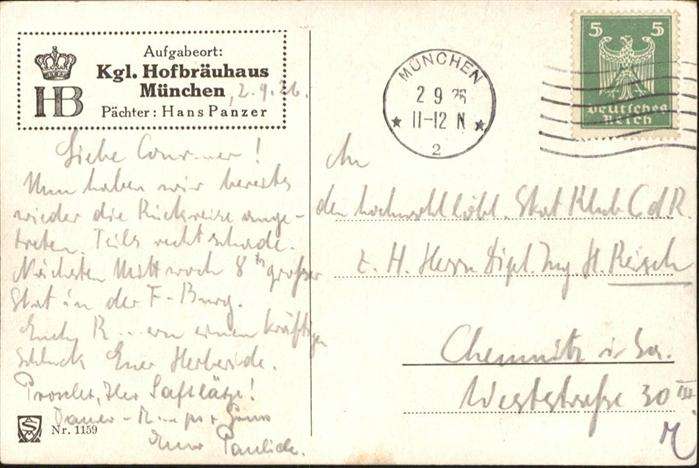 Aufgabeort:
Kgl. Hofbräuhaus
München
Pächter: Hans Panzer
HB
, 2.9.26.
MÜNCHEN
2 9 26
11-12 N
2
5 5
Deutsches
Reich
Liebe
Nun haben wir bereits
wieder die Rückreise ange-
treten. Teils recht schade.
Nächsten Mittwoch 8 großer
Skat in der F-Burg.
einen kräftigen
Schluck Euer
Prosit, Ihr
Dauer-
Euer
Nr. 1159
An
den hochwohllöbl. Skat Klub C d R
z. H. Herrn Dipl. Ing H. Reisch
Chemnitz i. Sa.
Weststraße 30 III